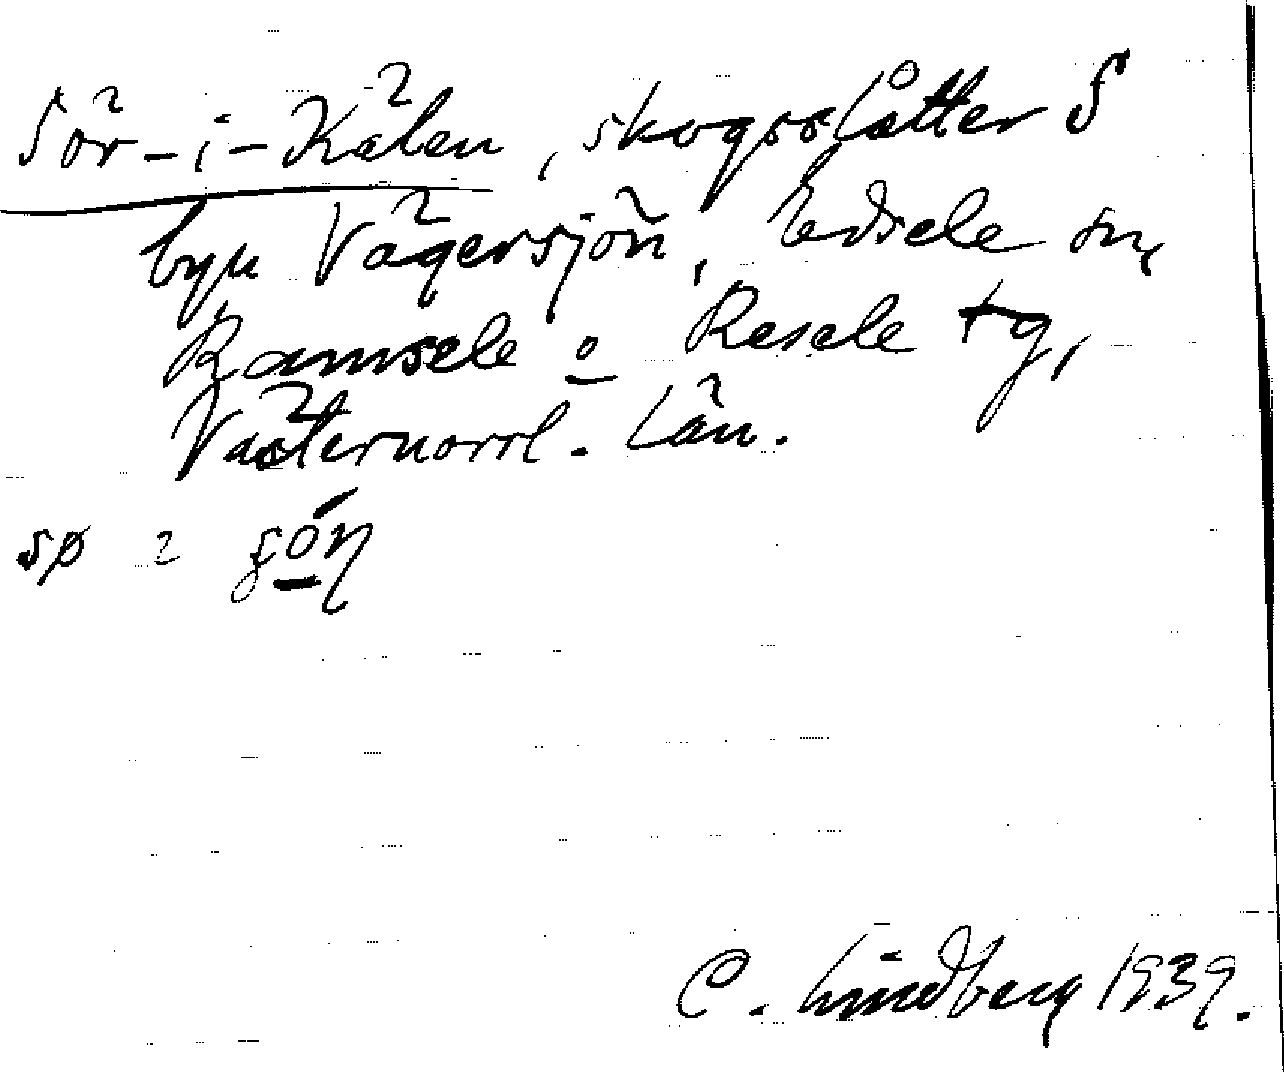 Sör-i-Kälen, skogsslåtter S
byn Vägersjön, Edsele sn,
Ramsele o Resele tg,
Västernorrl. län.
C. Lindberg 1939.